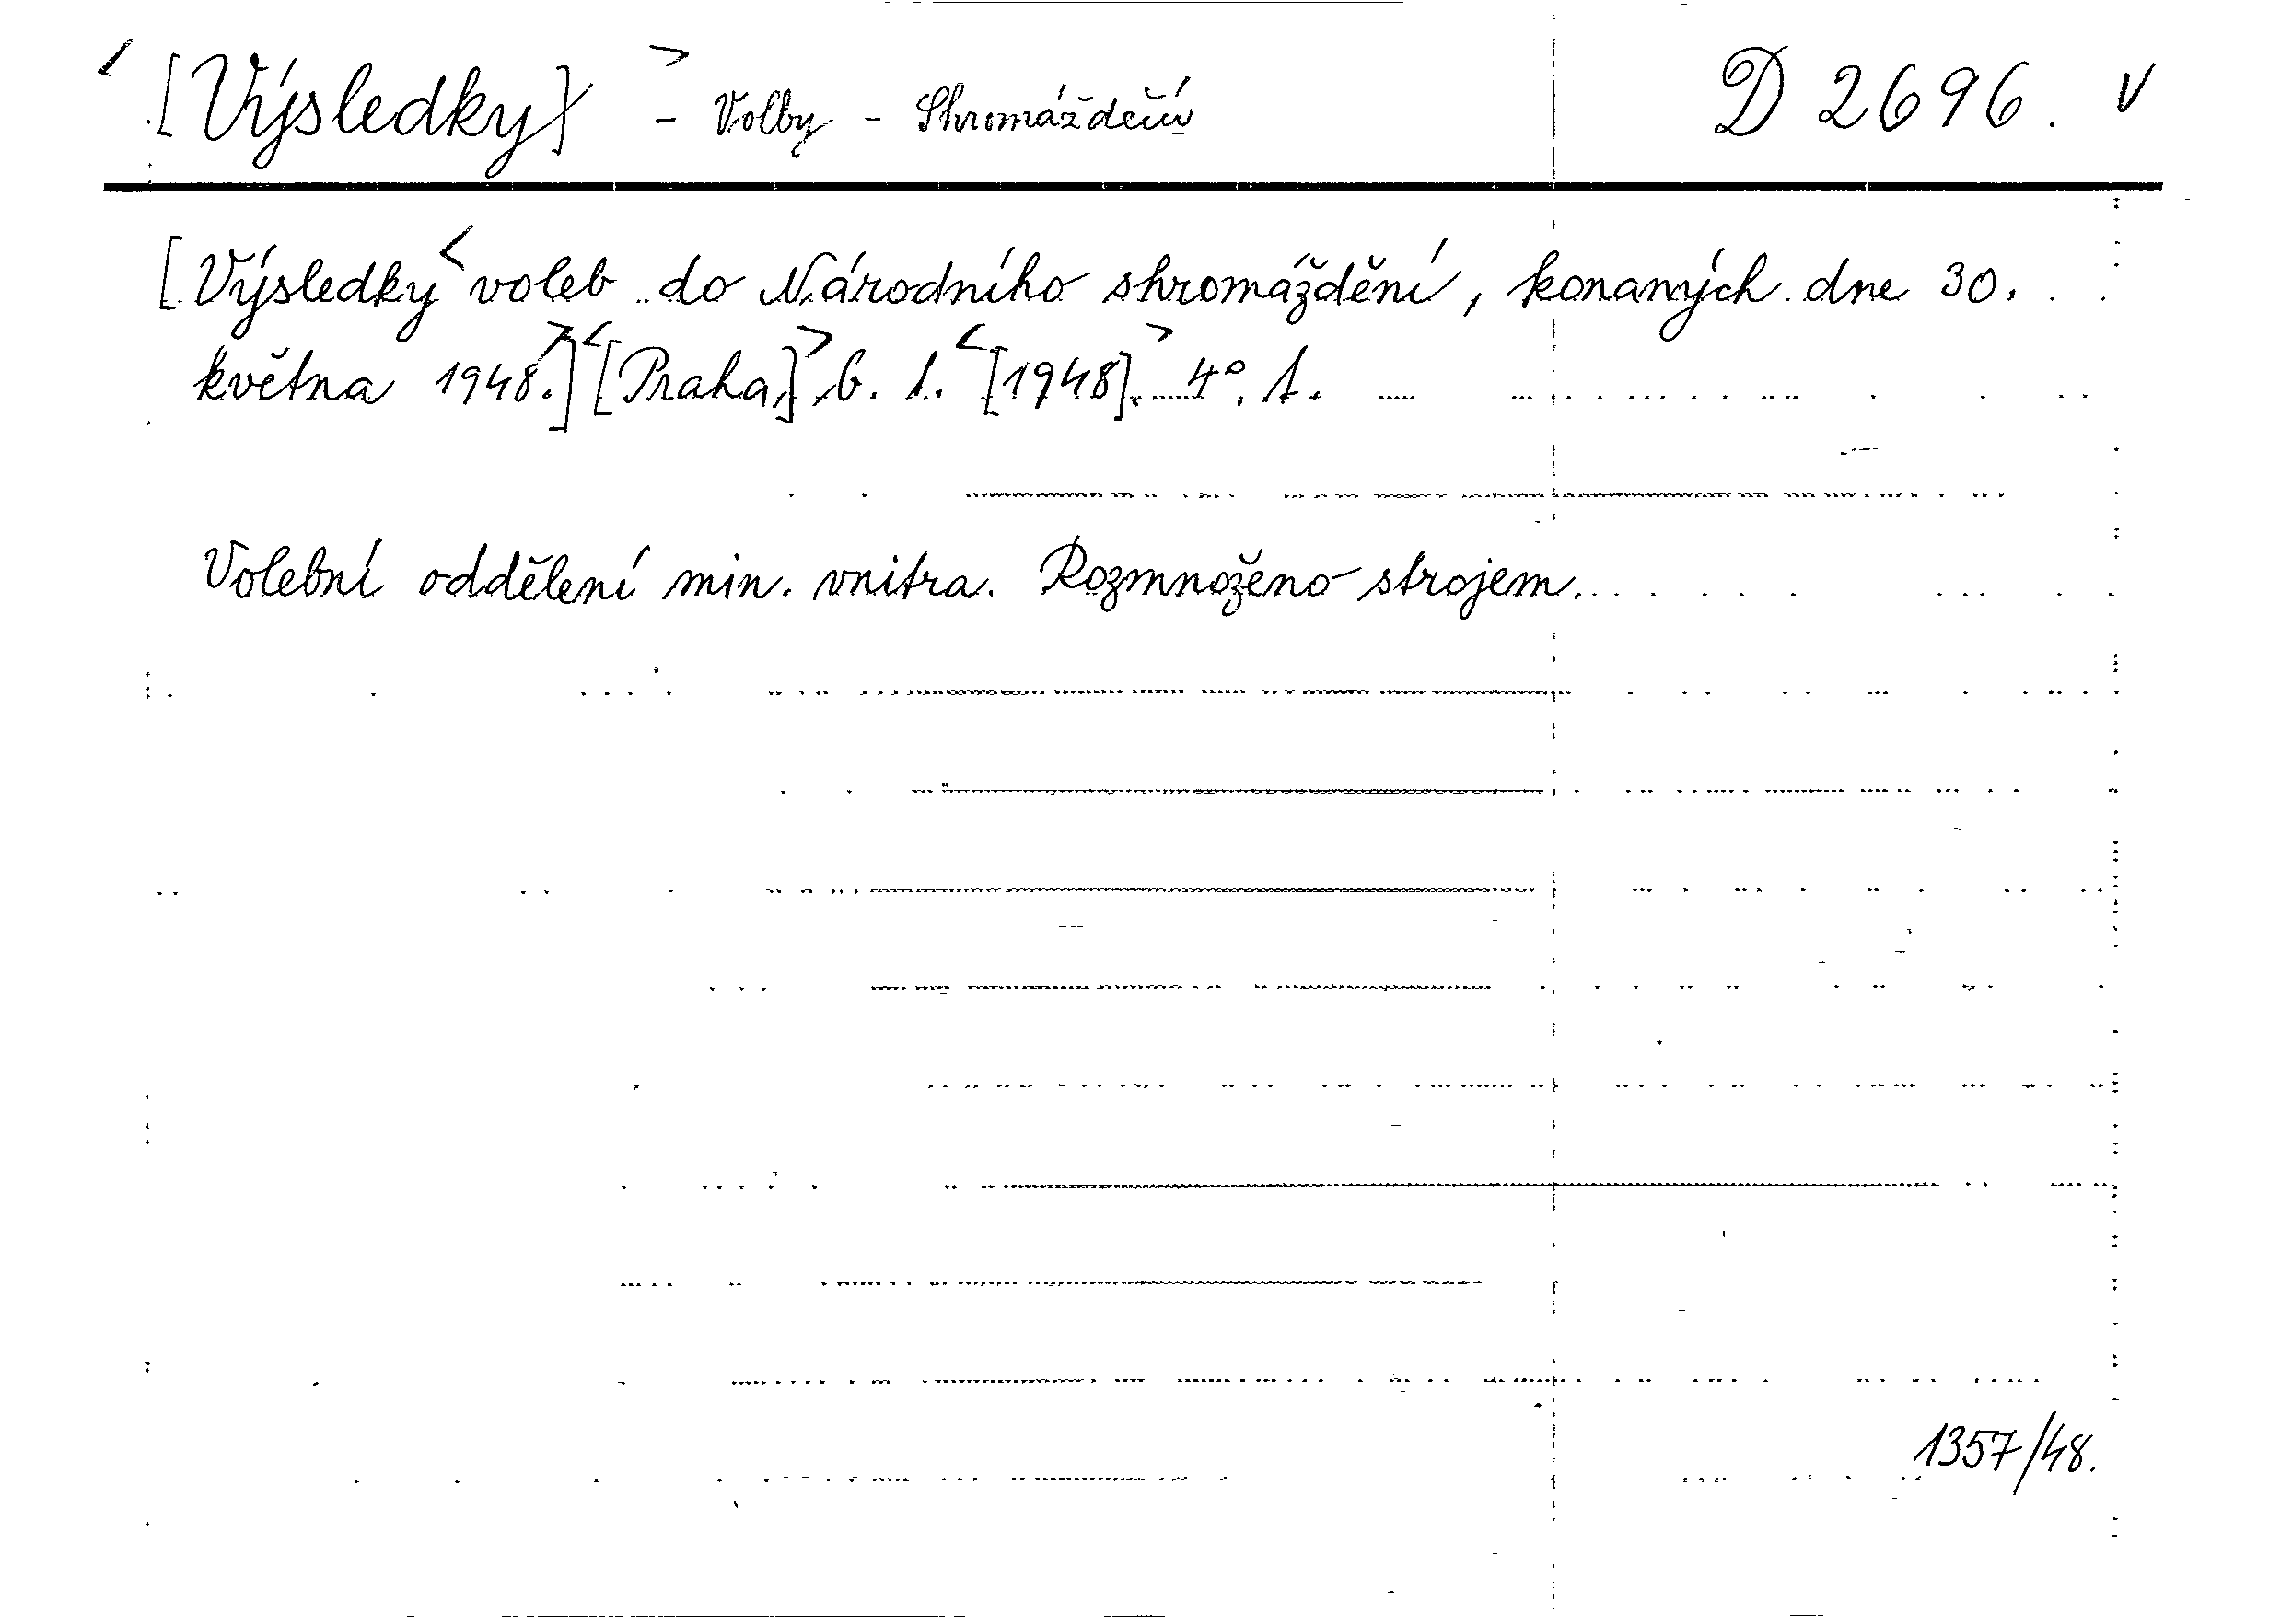 <[Výsledky]> - Volby - Shromáždění D 2696. v
[Výsledky< voleb do Národního shromáždění, konaných dne 30.
května 1948.>] <[Praha,]> b. t. <[1948].> 4°. A.
Volební oddělení min. vnitra. Rozmnoženo strojem.
1357/48.